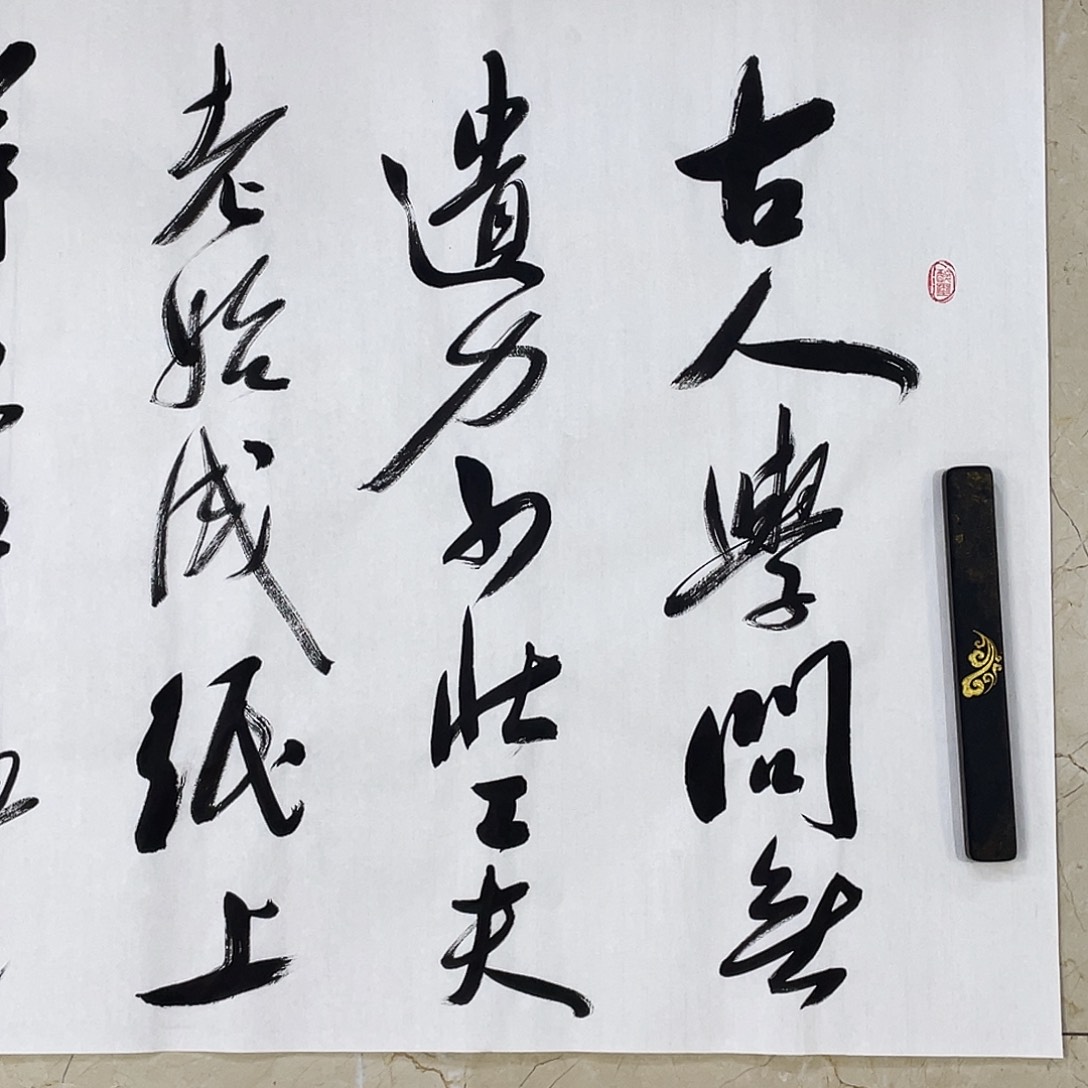 古人學問無
遺力少壯工夫
老始成紙上